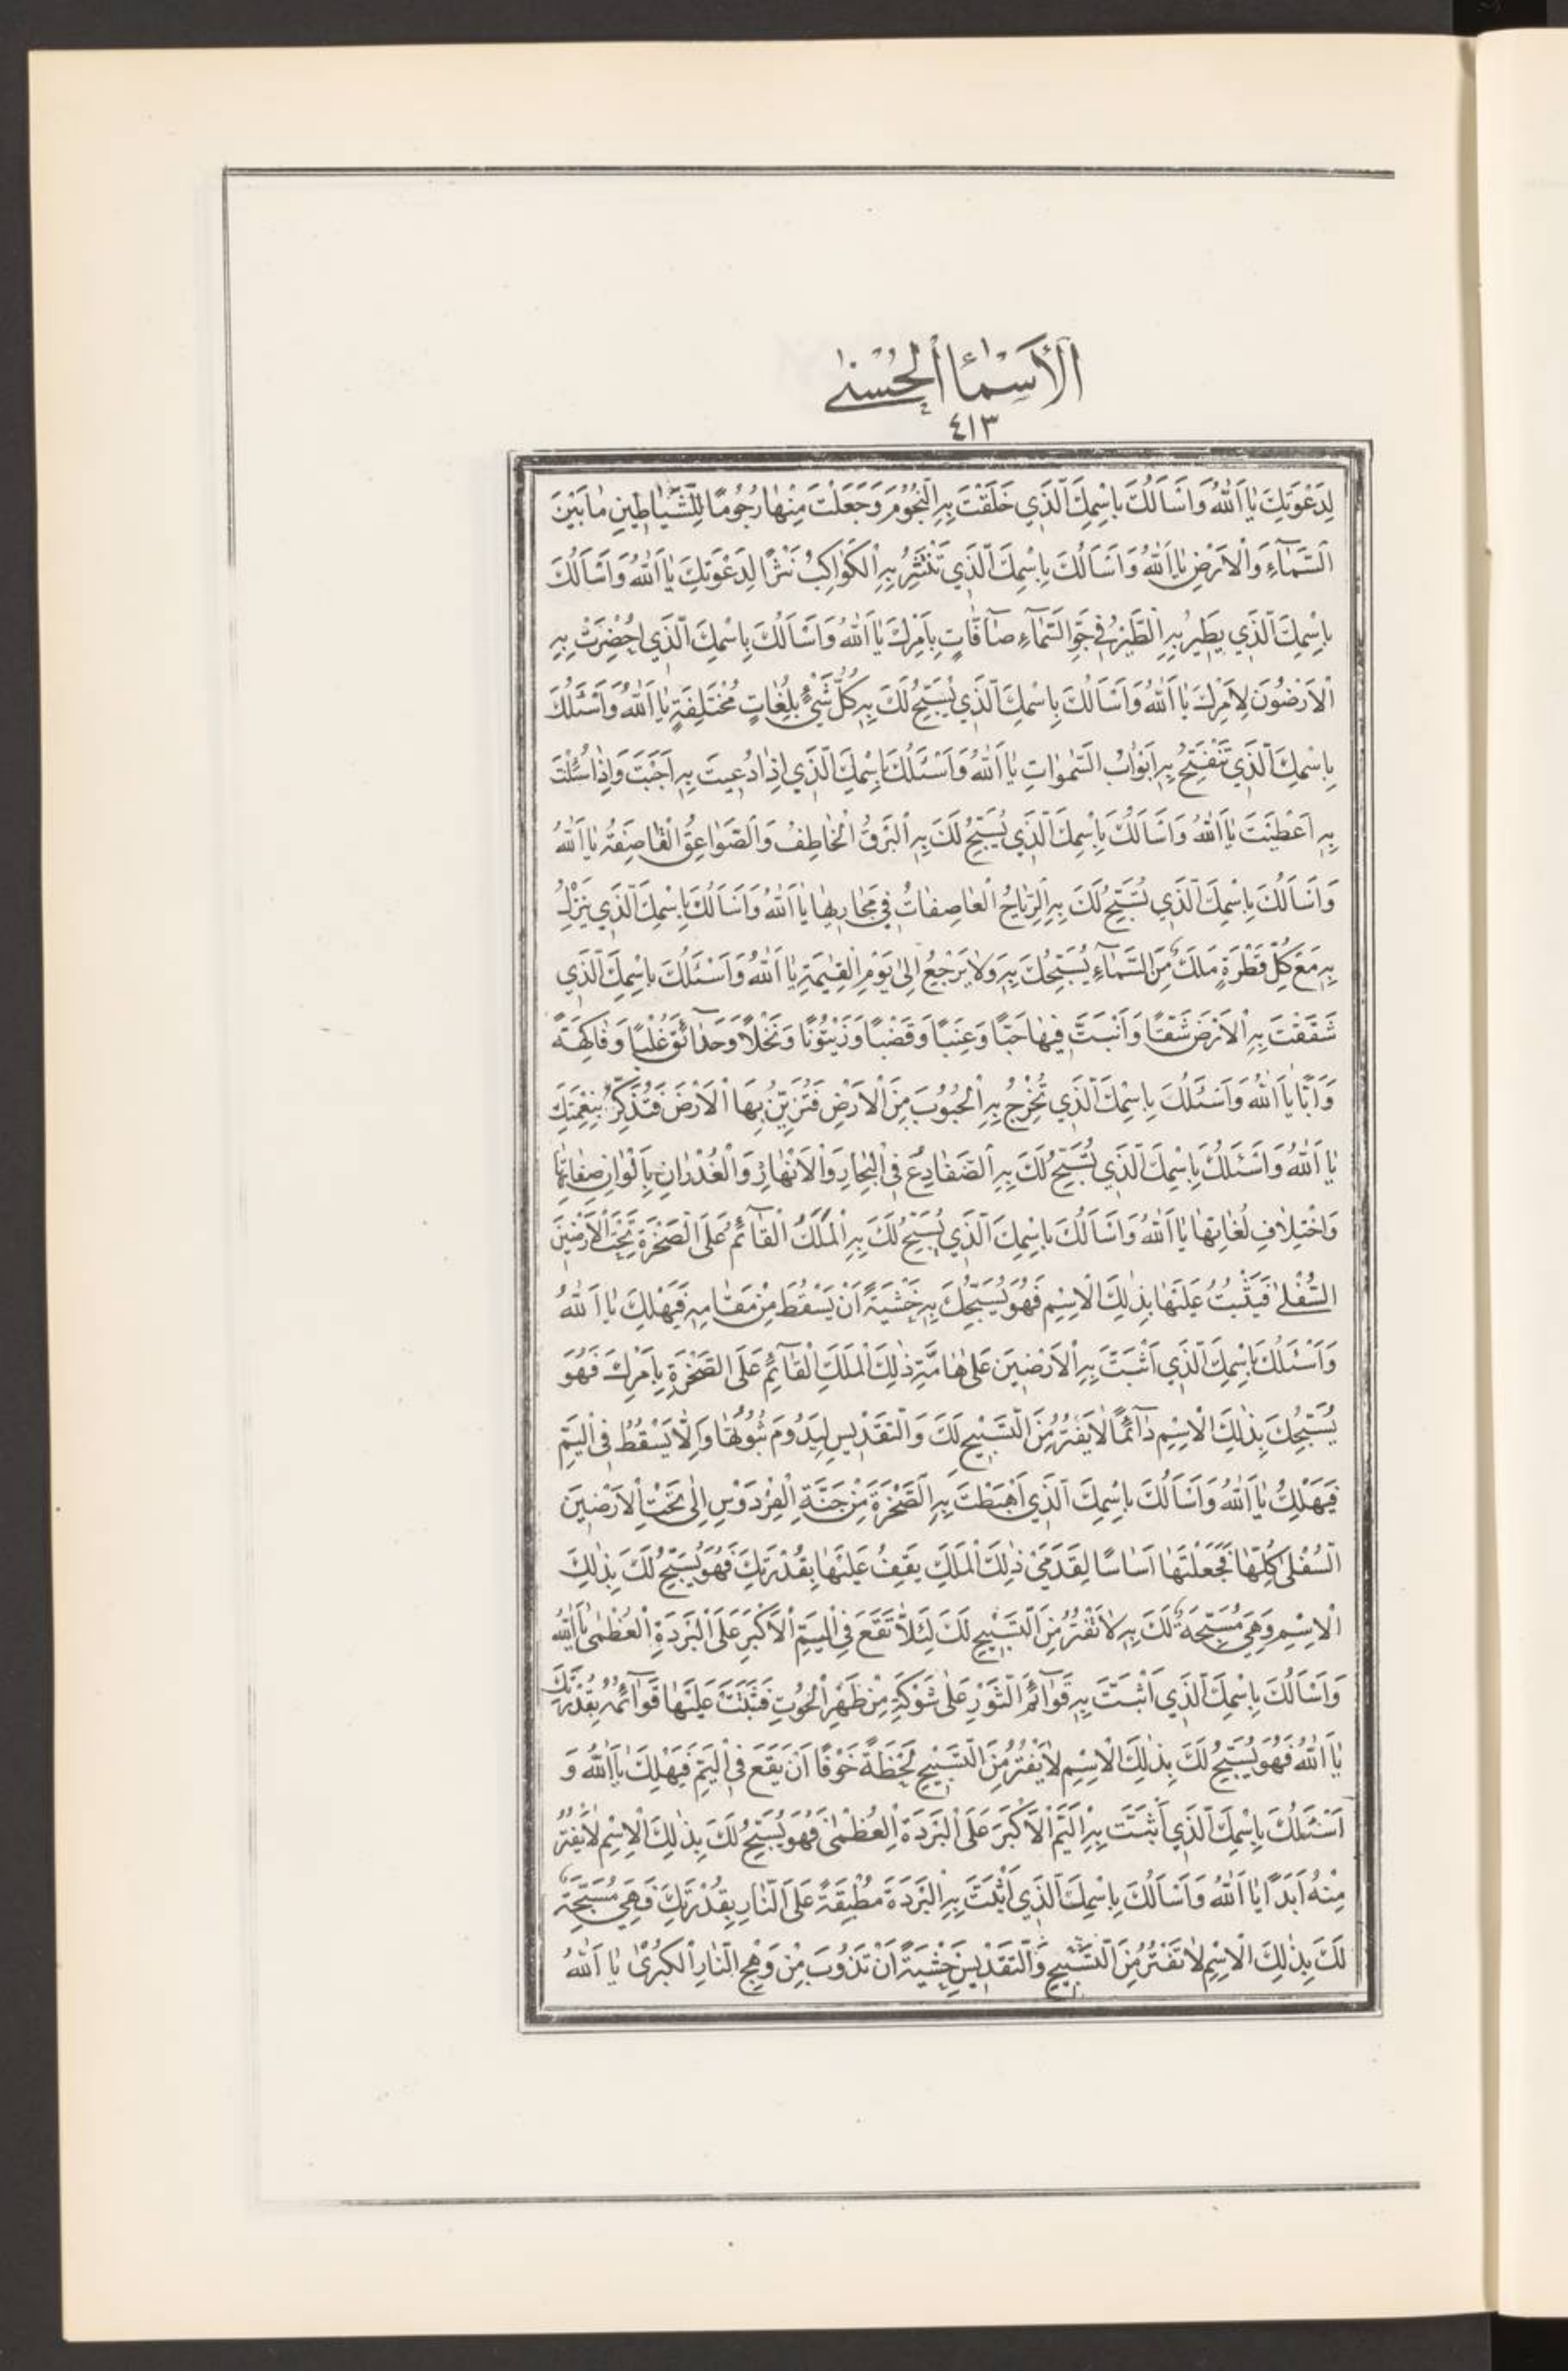 اَلْأَسْمٰاءُ الْحُسْنىٰ
٤١٣
لِدَعْوَتِكَ يٰا اَللّٰهُ وَاَسَاَلُكَ بِاسْمِكَ الَّذَي خَلَقْتَ بِهِ النُّجُوْمَ وَجَعَلْتَ مِنْهٰا رُجُومًا لِلشَّيٰاطِينِ مٰا بَيْنَ
السَّمٰاۤءِ وَالْاَرْضِ يٰا اَللّٰهُ وَاَسْاَلُكَ بِاِسْمِكَ الَّذَي تَنْتَثِرُ بِهِ الْكَوٰاكِبُ نَثْرًا لِدَعْوَتِكَ يٰا اَللّٰهُ وَاَسْاَلُكَ
بِاِسْمِكَ الَّذَي يَطِيْرُ بِهِ الطَّيْرُ فِي جَوِّ السَّمٰاۤءِ صٰاۤفّٰاتٍ بِاَمْرِكَ يٰا اَللّٰهُ وَاَسْاَلُكَ بِاِسْمِكَ الَّذَي اُحْضِرَتْ بِهِ
الْاَرَضُونَ لِاَمْرِكَ يٰا اَللّٰهُ وَاَسْاَلُكَ بِاِسْمِكَ الَّذَي يُسَبِّحُ لَكَ بِهِ كُلُّ شَيْءٍ بِلُغٰاتٍ مُخْتَلِفَةٍ يٰا اَللّٰهُ وَاَسْئَلُكَ
بِاِسْمِكَ الَّذَي تَنْفَتِحُ بِهِ اَبَوٰابُ السَّمٰوٰاتِ يٰا اَللّٰهُ وَاَسْئَلُكَ بِاِسْمِكَ الَّذَي اِذٰا دُعِيتَ بِهِ اَجَبْتَ وَاِذٰا سُئِلْتَ
بِهِ اَعْطَيْتَ يٰا اَللّٰهُ وَاَسْاَلُكَ بِاِسْمِكَ الَّذَي يُسَبِّحُ لَكَ بِهِ الْبَرْقُ الْخٰاطِفُ وَالصَّوٰاعِقُ الْقٰاصِفَةُ يٰا اَللّٰهُ
وَاَسْاَلُكَ بِاِسْمِكَ الَّذَي تُسَبِّحُ لَكَ بِهِ الرِّيٰاحُ الْعٰاصِفٰاتُ فِي مَجٰارِيهٰا يٰا اَللّٰهُ وَاَسْاَلُكَ بِاِسْمِكَ الَّذَي يَنْزِلُ
بِهِ مَعَ كُلِّ قَطْرَةٍ مَلَكٌ مِنَ السَّمٰاۤءِ يُسَبِّحُكَ بِهِ وَلاٰ يَرْجِعُ اِلىٰ يَوْمِ الْقِيٰمَةِ يٰا اَللّٰهُ وَاَسْئَلُكَ بِاِسْمِكَ الَّذَي
شَقَقْتَ بِهِ الْاَرْضَ شَقًّا وَاَنْبَتَّ فِيهٰا حَبًّا وَعِنَبًا وَقَضْبًا وَزَيْتُوْنًا وَنَخْلاً وَحَدٰاۤئِقَ غُلْبًا وَفٰاكِهَةً
وَاَبًّا يٰا اَللّٰهُ وَاَسْئَلُكَ بِاِسْمِكَ الَّذَي تُخْرِجُ بِهِ الْحُبُوْبَ مِنَ الْاَرْضِ فَتُزَيِّنُ بِهَا الْاَرْضَ فَتُذَكِّرُ بِنِعْمَتِكَ
يٰا اَللّٰهُ وَاَسْئَلُكَ بِاِسْمِكَ الَّذَي تُسَبِّحُ لَكَ بِهِ الضَّفٰادِعُ فِي الْبِحٰارِ وَالْاَنْهٰارِ وَالْغُدْرٰانِ بِاَلْوٰانِ صِفٰاتِهٰا
وَاخْتِلاٰفِ لُغٰاتِهٰا يٰا اَللّٰهُ وَاَسْاَلُكَ بِاِسْمِكَ الَّذَي يُسَبِّحُ لَكَ بِهِ الْمَلَكُ الْقٰاۤئِمُ عَلَى الصَّخْرَةِ تَحْتَ الْاَرَضِيْنَ
السُّفْلىٰ فَيَثْبُتُ عَلَيْهٰا بِذٰلِكَ الْاِسْمِ فَهُوَ يُسَبِّحُكَ بِهِ خَشْيَةً اَنْ يَسْقُطَ مِنْ مَقٰامِهِ فَيَهْلِكَ يٰا اَللّٰهُ
وَاَسْئَلُكَ بِاِسْمِكَ الَّذَي اَثْبَتَّ بِهِ الْاَرَضِيَن عَلىٰ هٰامَّةِ ذٰلِكَ الْمَلَكِ الْقٰاۤئِمِ عَلَى الصَّخْرَةِ بِاَمْرِكَ فَهُوَ
يُسَبِّحُكَ بِذٰلِكَ الْاِسْمِ دٰاۤئِمًا لاٰ يَفْتُرُ مِنَ التَّسْبِيْحِ لَكَ وَالتَّقْدِيْسِ لِيَدُوْمَ ثُبُوْتُهٰا وَاِلاّٰ يَسْقُطُ فِي الْيَمِّ
فَيَهْلِكُ يٰا اَللّٰهُ وَاَسْاَلُكَ بِاِسْمِكَ الَّذَي اَهْبَطْتَ بِهِ الصَّخْرَةَ مِنْ جَنَّةِ الْفِرْدَوْسِ اِلىٰ تَحْتِ الْاَرَضِيَن
السُّفْلىٰ كُلِّهٰا فَجَعَلْتَهٰا اَسٰاسًا لِقَدَمَيْ ذٰلِكَ الْمَلَكِ يَقِفُ عَلَيْهٰا بِقُدْرَتِكَ فَهُوَ يُسَبِّحُ لَكَ بِذٰلِكَ
الْاِسْمِ وَهِيَ مُسَبِّحَةٌ لَكَ بِهِ لاٰ تَفْتُرُ مِنَ التَّسْبِيْحِ لَكَ لِئَلاّٰ تَقَعَ فِي الْيَمِّ الْاَكْبَرِ عَلَى الْبَرَدَةِ الْعُظْمىٰ يٰا اَللّٰهُ
وَاَسْاَلُكَ بِاِسْمِكَ الَّذَي اَثْبَتَّ بِهِ قَوٰاۤئِمَ الثَّوْرِ عَلىٰ شَوْكَةٍ مِنْ ظَهْرِ الْحُوْتِ فَثَبَتَتْ عَلَيْهٰا قَوٰاۤئِمُهُ بِقُدْرَتِكَ
يٰا اَللّٰهُ فَهُوَ يُسَبِّحُ لَكَ بِذٰلِكَ الْاِسْمِ لاٰ يَفْتُرُ مِنَ التَّسْبِيْحِ لَحْظَةً خَوْفًا اَنْ يَقَعَ فِي الْيَمِّ فَيَهْلِكَ يٰا اَللّٰهُ وَ
اَسْئَلُكَ بِاِسْمِكَ الَّذَي اَثْبَتَّ بِهِ الْيَمَّ الْاَكْبَرَ عَلَى الْبَرَدَةِ الْعُظْمىٰ فَهُوَ يُسَبِّحُ لَكَ بِذٰلِكَ الْاِسْمِ لاٰ يَفْتُرُ
مِنْهُ اَبَدًا يٰا اَللّٰهُ وَاَسْاَلُكَ بِاِسْمِكَ الَّذَي اَثْبَتَّ بِهِ الْبَرَدَةَ مُطْبِقَةً عَلَى النّٰارِ بِقُدْرَتِكَ فَهِيَ مُسَبِّحَةٌ
لَكَ بِذٰلِكَ الْاِسْمِ لاٰ تَفْتُرُ مِنَ التَّسْبِيْحِ وَالتَّقْدِيْسِ خَشْيَةً اَنْ تَذُوْبَ مِنْ وَهَجِ النّٰارِ الْكُبْرىٰ يٰا اَللّٰهُ